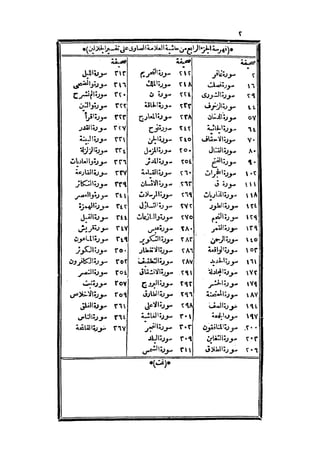 ٢
*(فهرسة الجزء الرابع من حاشية العلامة الصاوى على تفسير الجلالين)*
صحيفة
٢ سورة غافر
١٦ سورة فصلت
٢٩ سورة الشورى
٤٤ سورة الزخرف
٥٧ سورة الدخان
٦٤ سورة الجاثية
٧٠ سورة الاحقاف
٨٠ سورة القتال
٩٠ سورة الفتح
١٠٢ سورة الحجرات
١١١ سورة ق
١١٨ سورة الذاريات
١٢٤ سورة الطور
١٢٩ سورة النجم
١٣٩ سورة القمر
١٤٥ سورة الرحمن
١٥٣ سورة الواقعة
١٦١ سورة الحديد
١٧٢ سورة المجادلة
١٧٩ سورة الحشر
١٨٧ سورة الممتحنة
١٩٤ سورة الصف
١٩٧ سورة الجمعة
٢٠٠ سورة المنافقون
٢٠٣ سورة التغابن
٢٠٦ سورة الطلاق
صحيفة
٢١٢ سورة التحريم
٢١٨ سورة الملك
٢٢٤ سورة ن
٢٣٣ سورة الحاقة
٢٣٨ سورة المعارج
٢٤٢ سورة نوح
٢٤٥ سورة الجن
٢٥٠ سورة المزمل
٢٥٤ سورة المدثر
٢٦٠ سورة القيامة
٢٦٤ سورة الانسان
٢٦٩ سورة المرسلات
٢٧٢ سورة التساؤل
٢٧٥ سورة والنازعات
٢٨٠ سورة عبس
٢٨٣ سورة التكوير
٢٨٦ سورة الانفطار
٢٨٧ سورة التطفيف
٢٩١ سورة الانشقاق
٢٩٣ سورة البروج
٢٩٦ سورة الطارق
٢٩٨ سورة الاعلى
٣٠١ سورة الغاشية
٣٠٤ سورة الفجر
٣٠٩ سورة البلد
٣١١ سورة الشمس
صحيفة
٣١٣ سورة الليل
٣١٦ سورة والضحى
٣٢٠ سورة الم نشرح
٣٢٢ سورة والتين
٣٢٤ سورة اقرأ
٣٢٧ سورة القدر
٣٣١ سورة البينة
٣٣٤ سورة الزلزلة
٣٣٦ سورة والعاديات
٣٣٧ سورة القارعة
٣٣٩ سورة التكاثر
٣٤١ سورة والعصر
٣٤٢ سورة الهمزة
٣٤٤ سورة الفيل
٣٤٧ سورة قريش
٣٤٩ سورة الماعون
٣٥٠ سورة الكوثر
٣٥٢ سورة الكافرون
٣٥٤ سورة النصر
٣٥٦ سورة تبت
٣٥٩ سورة الاخلاص
٣٦١ سورة الفلق
٣٦٤ سورة الناس
٣٦٧ سورة الفاتحة
*(تمت)*